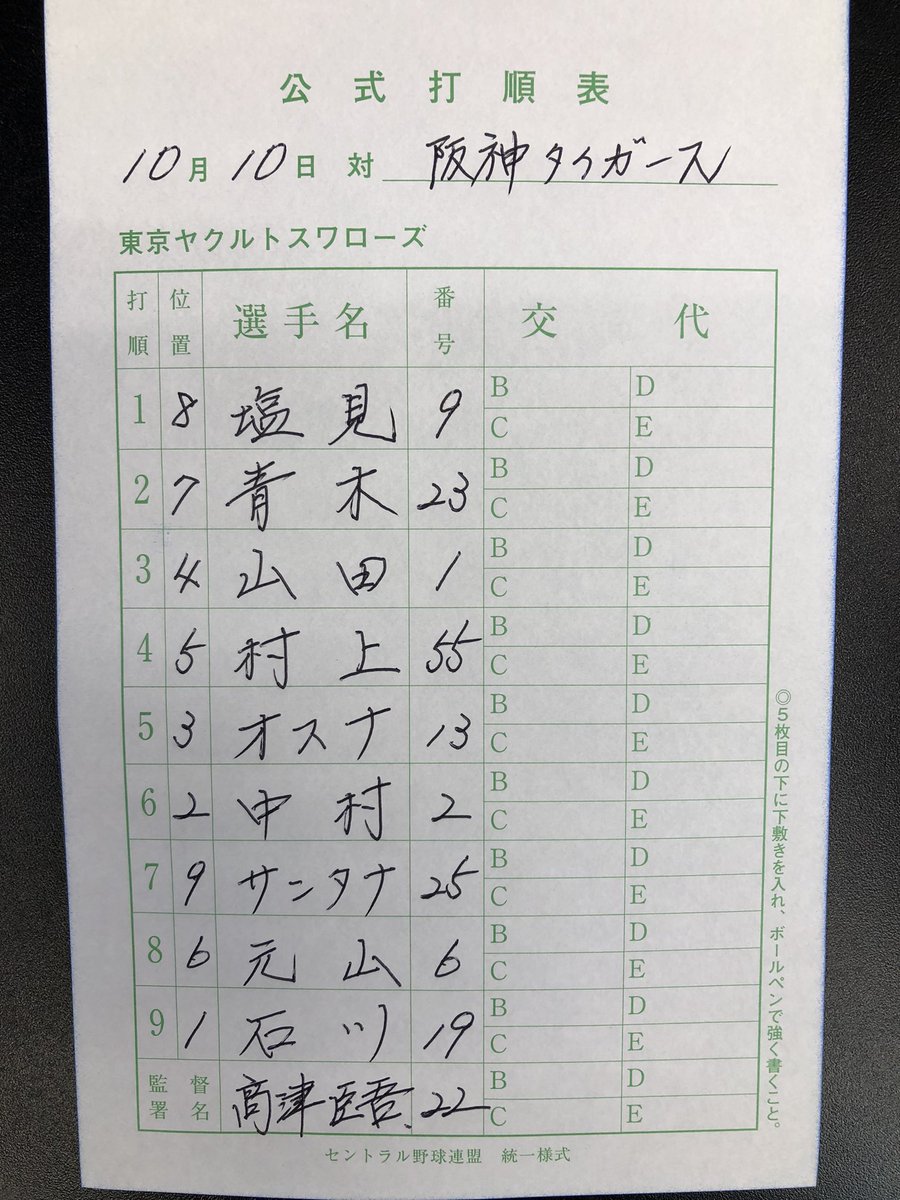 公式打順表
10月10日 対 阪神タイガース
東京ヤクルトスワローズ
打順 位置 選手名 番号 交代
1 8 塩見 9 B D
C E
2 7 青木 23 B D
C E
3 4 山田 1 B D
C E
4 5 村上 55 B D
C E
5 3 オスナ 13 B D
C E
6 2 中村 2 B D
C E
7 9 サンタナ 25 B D
C E
8 6 元山 6 B D
C E
9 1 石川 19 B D
C E
監督署名 高津臣吾 22 B D
C E
セントラル野球連盟 統一様式
◎5枚目の下に下敷きを入れ、ボールペンで強く書くこと。